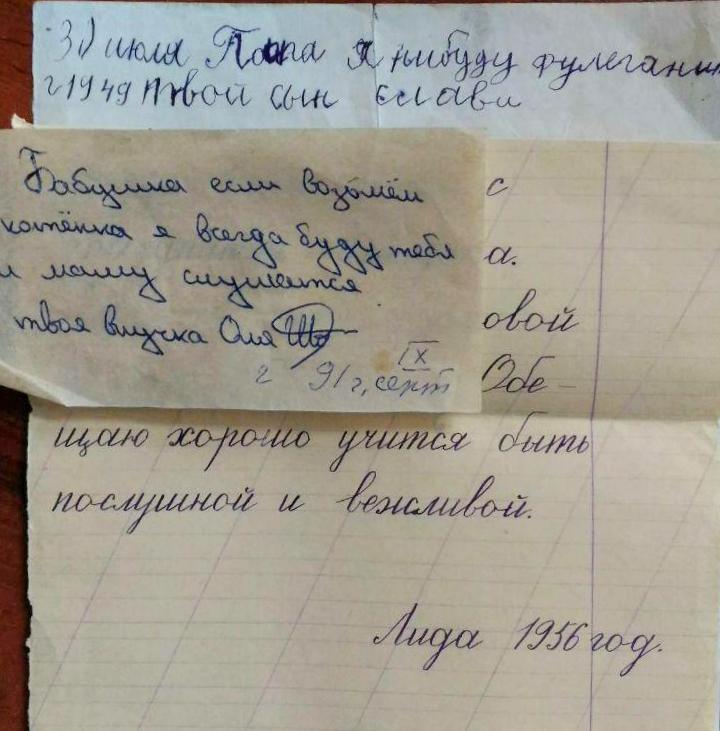 31 июля Папа я нибуду фулеганит
г 1949 твой сын Слави
Бабушка если возьмём
котёнка я всегда буду тебя
и маму слушатся
твоя внучка Оля
IX
г 91 г, сент
с
а.
овой
Обе-
щаю хорошо учится быть
послушной и вежливой.
Лида 1956 год.